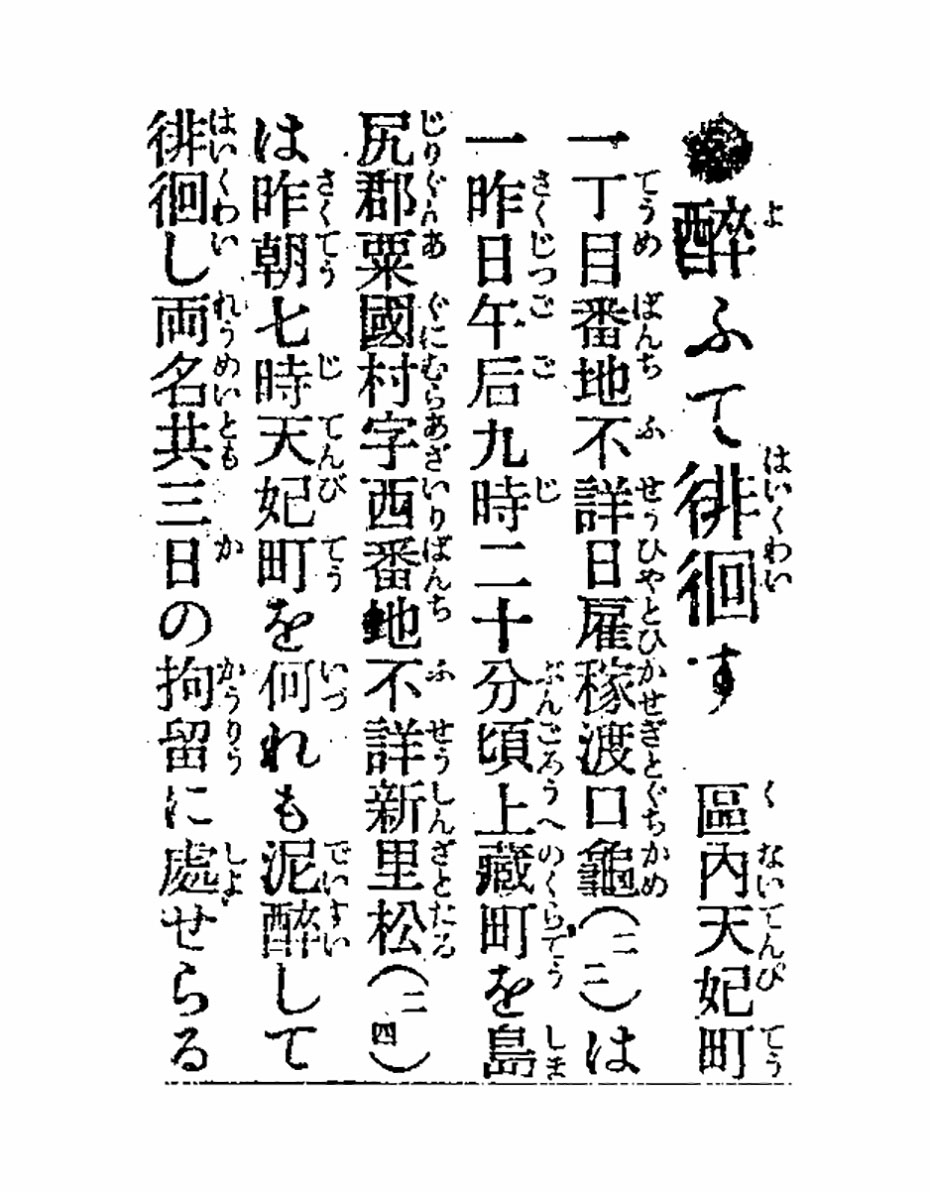 ●醉ふて徘徊す 區内天妃町
一丁目番地不詳日雇稼渡口龜(二二)は
一昨日午后九時二十分頃上藏町を島
尻郡粟國村字西番地不詳新里松(二四)
は昨朝七時天妃町を何れも泥醉して
徘徊し両名共三日の拘留に處せらる